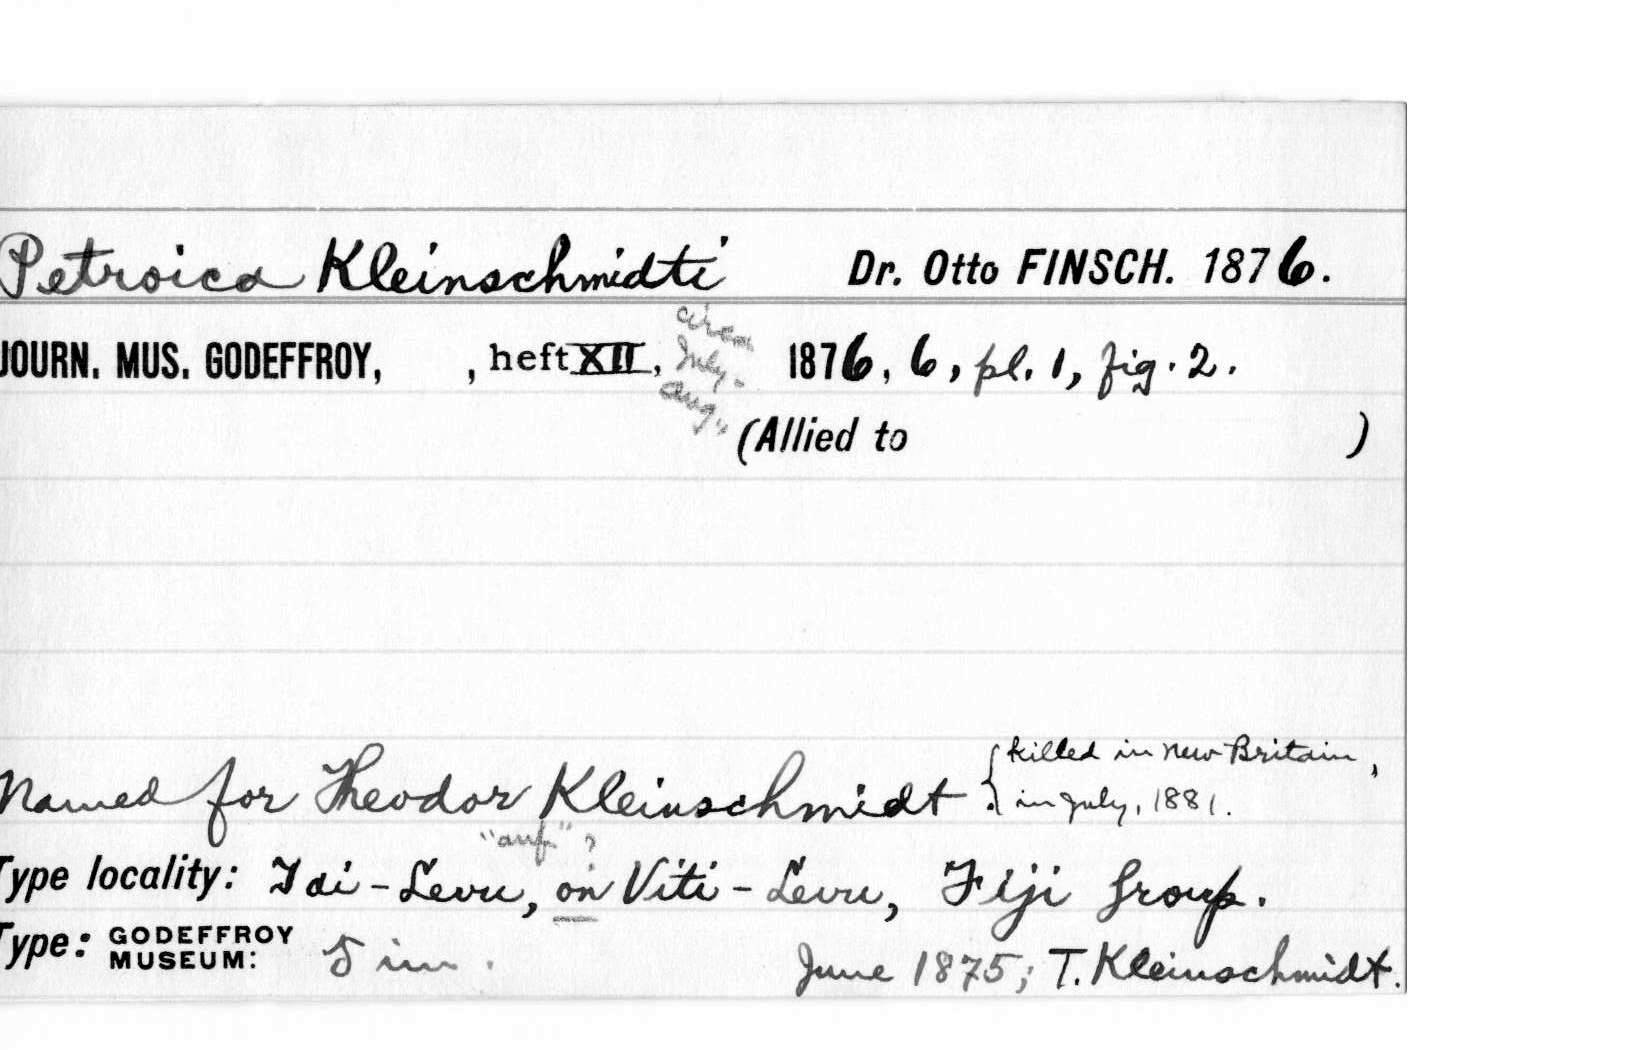 Petroica Kleinschmidti Dr. Otto FINSCH. 1876.
circa
JOURN. MUS. GODEFFROY, , heft XII, July- 1876, 6, pl. 1, fig. 2.
Aug.
(Allied to )
Named for Theodor Kleinschmidt { killed in New Britain,
in July, 1881.
"auf" ?
Type locality: Tai-Levu, on Viti-Levu, Fiji Group.
Type: GODEFFROY MUSEUM: 5 im. June 1875; T. Kleinschmidt.